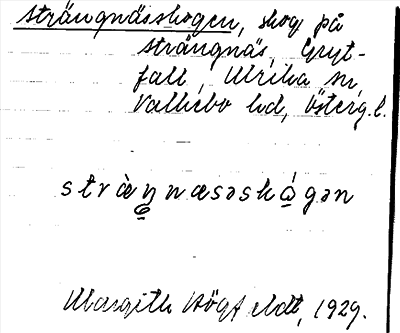 Strängnässkogen, skog på
Strängnäs, Gryt-
fall, Ulrika sn
Valkebo hd, Österg. l.
strὰŋnæsəskɷ́gən
Margith Högfeldt, 1929.